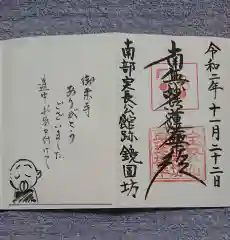 令和二年十一月二十二日
南無妙法蓮華経
南部実長公館跡 鏡圓坊
御来寺
ありがとう
ございました
道中お気を付けて